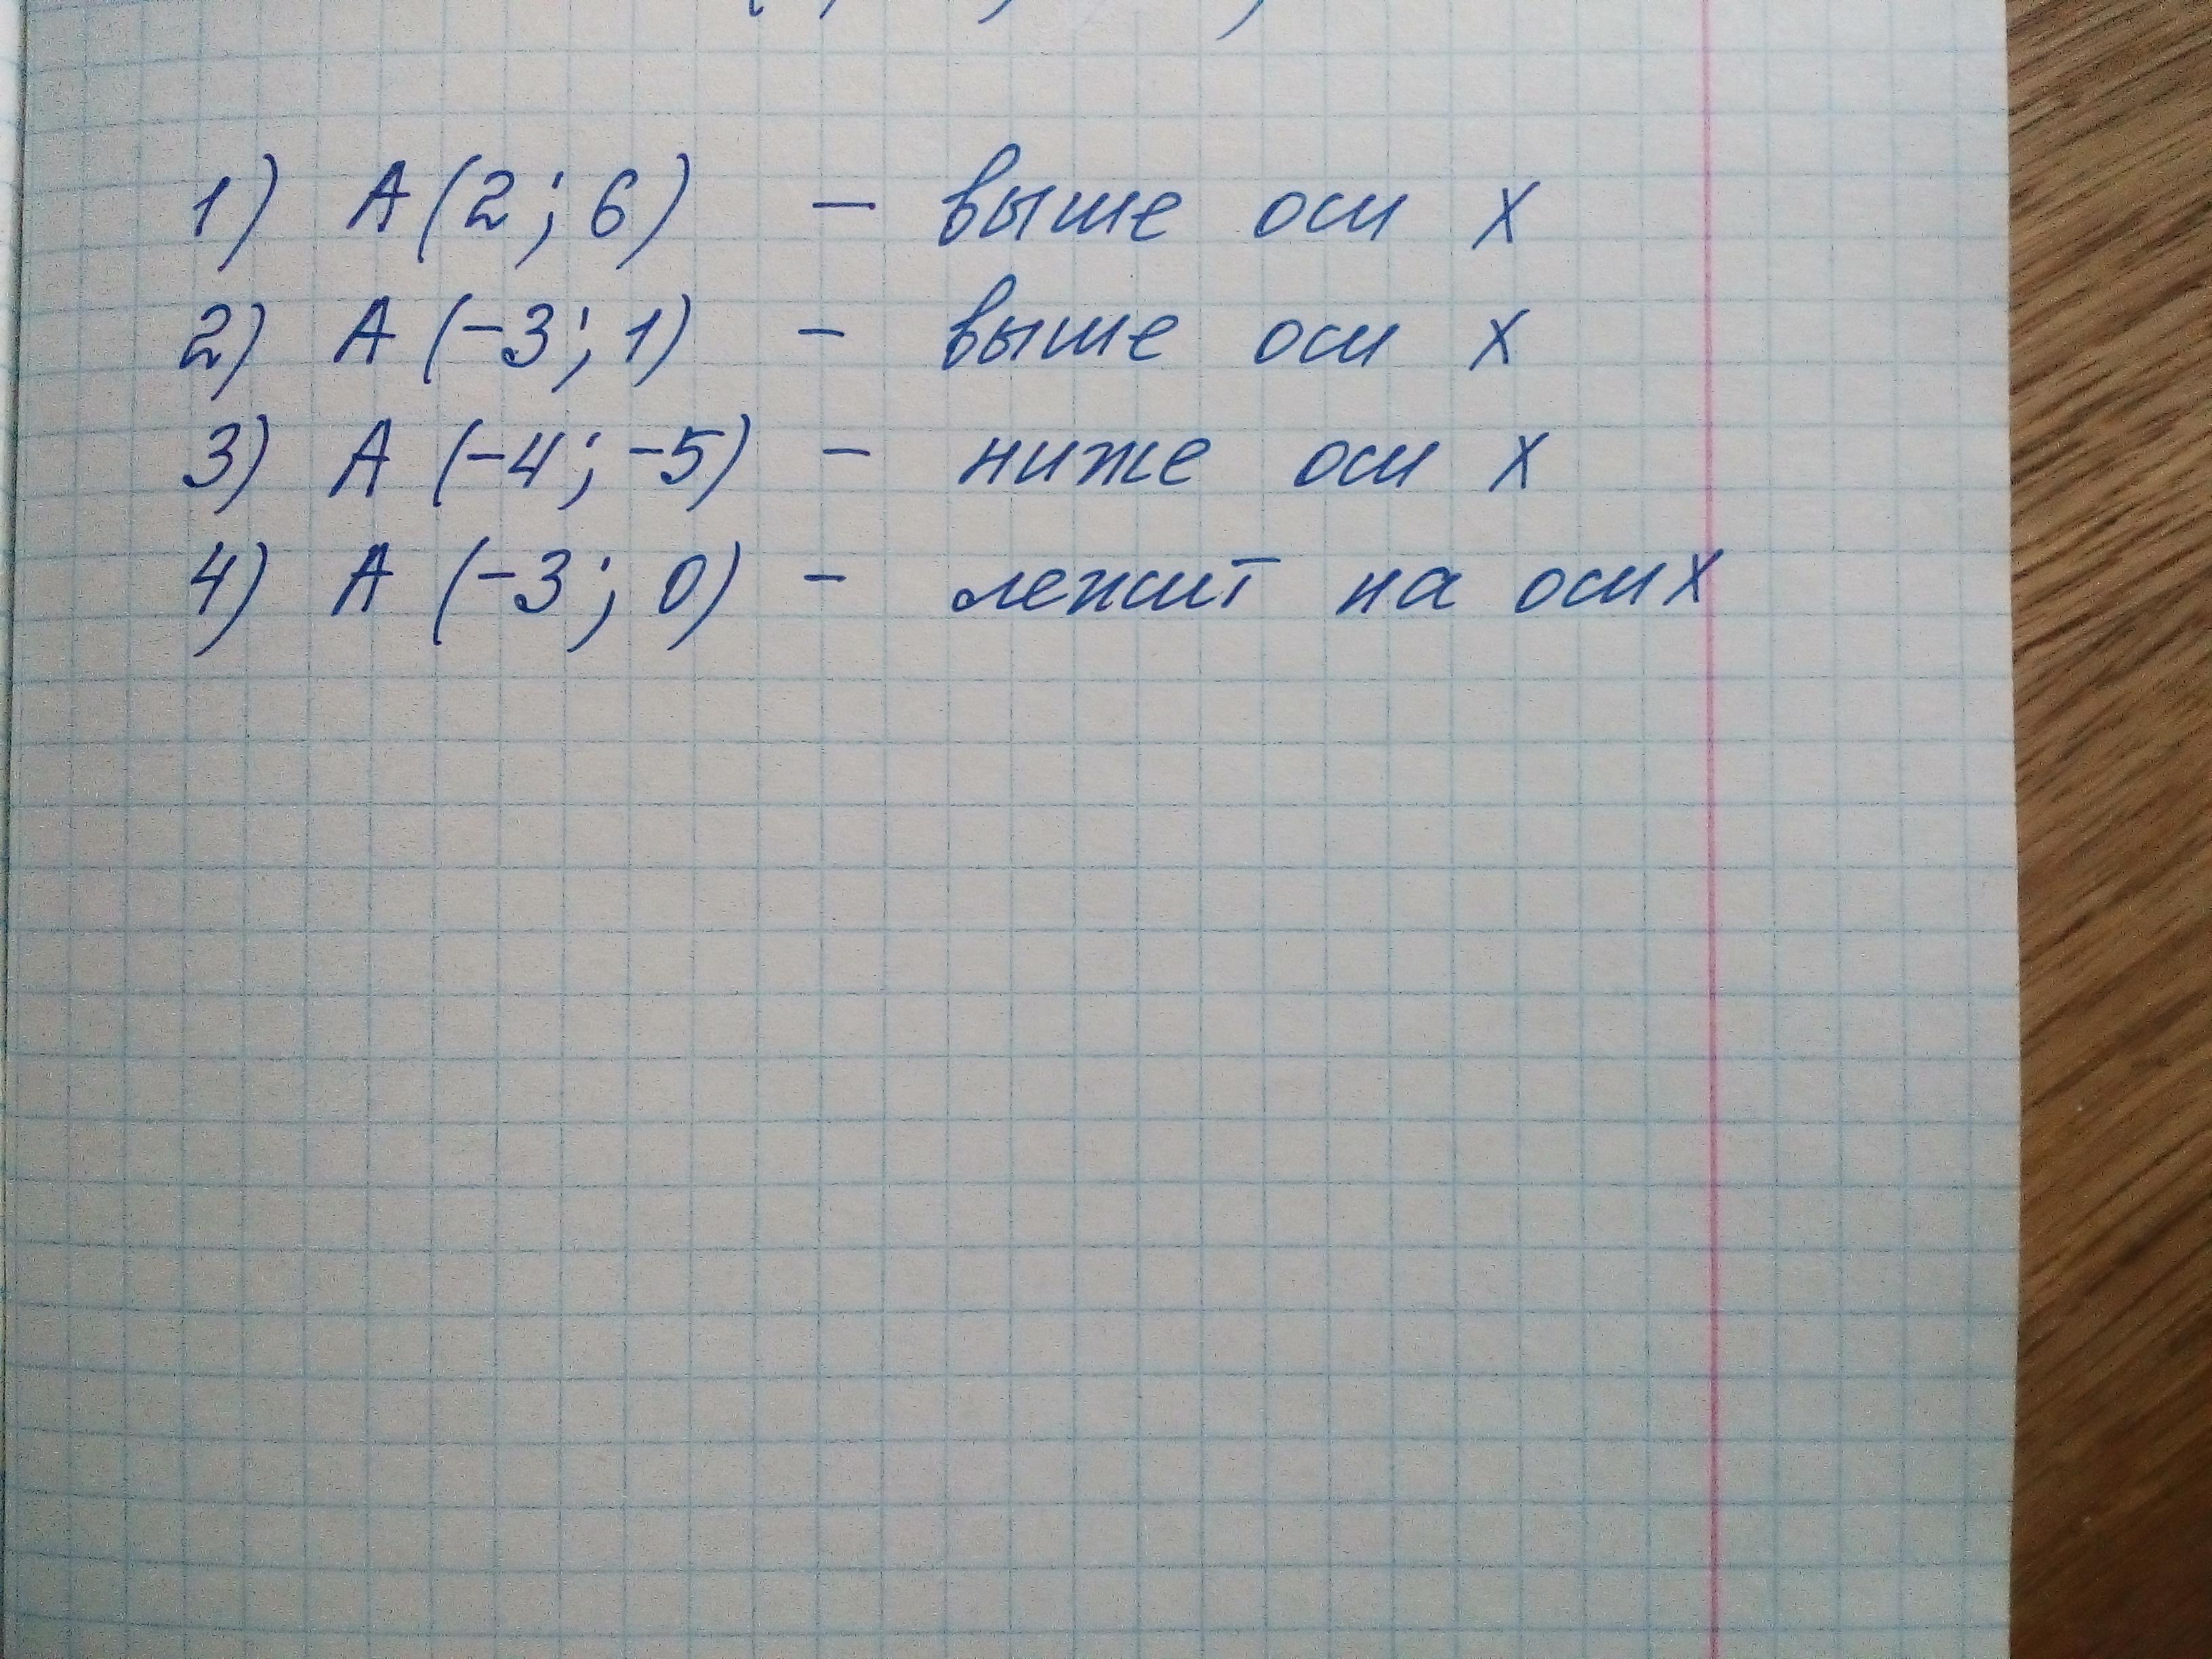 1) A(2; 6) - выше оси x
2) A (-3; 1) - выше оси x
3) A (-4; -5) - ниже оси x
4) A (-3; 0) - лежит на оси x